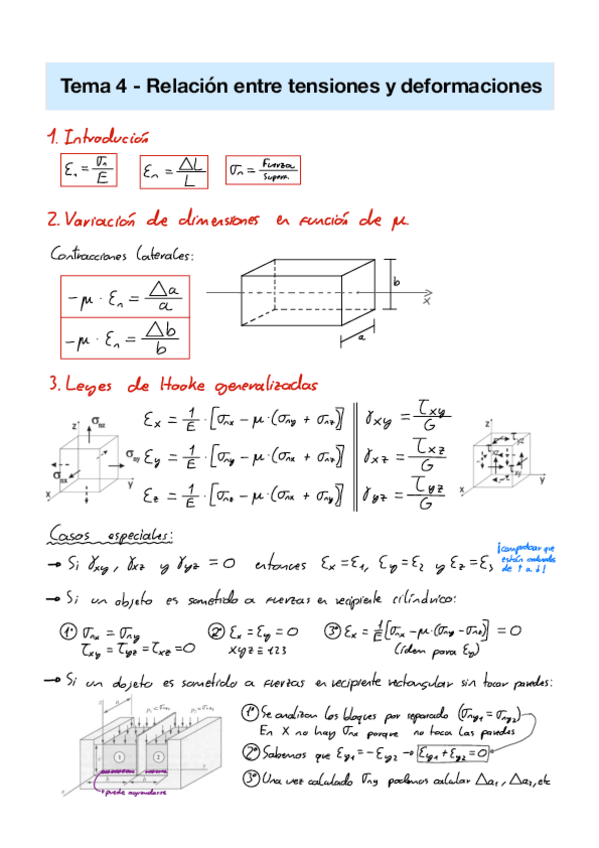 Tema 4 - Relación entre tensiones y deformaciones
1. Introdución
ε₁ = σₙ/E   εₙ = ΔL/L   σₙ = Fuerza/Superf.
2. Variación de dimensiones en función de μ
Contracciones laterales:
-μ · εₙ = Δa/a
-μ · εₙ = Δb/b
b
x
a
3. Leyes de Hooke generalizadas
εx = 1/E · [σnx - μ · (σny + σnz)]   γxy = τxy/G
εy = 1/E · [σny - μ · (σnx + σnz)]   γxz = τxz/G
εz = 1/E · [σnz - μ · (σnx + σny)]   γyz = τyz/G
z σnz σny σnx x y
z τxy τxz τyz x y
Casos especiales:
→ Si γxy, γxz y γyz = 0 entonces εx = ε1, εy = ε2 y εz = ε3
¡comprobar que
están ordenadas
→ Si un objeto es sometido a fuerzas en recipiente cilíndrico:
1º σnx = σny   2º εx = εy = 0   3º εx = 1/E[σnx - μ·(σny - σnz)] = 0
τxy = τyz = τxz = 0   xyz ≡ 123   (ídem para εy)
→ Si un dojeto es sometido a fuerzas en recipiente rectangular sin tocar paredes:
1º Se analizan los bloques por separado (σny1 = σny2)
En X no hay σnx porque no toca las paredes
2º Sabemos que εy1 = -εy2 → εy1 + εy2 = 0
3º Una vez calculado σny podemos calcular Δa1, Δa2, etc
1 2
puede agrandarse